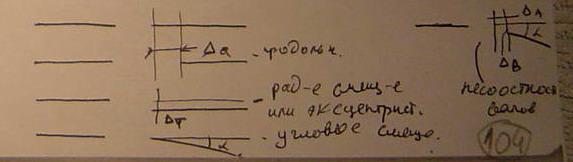 Δa - продольн.
рад-е смещ-е
или эксцентрист.
Δr
- угловое смещ.
α
ΔA
α
ΔB
несоосность
валов
104